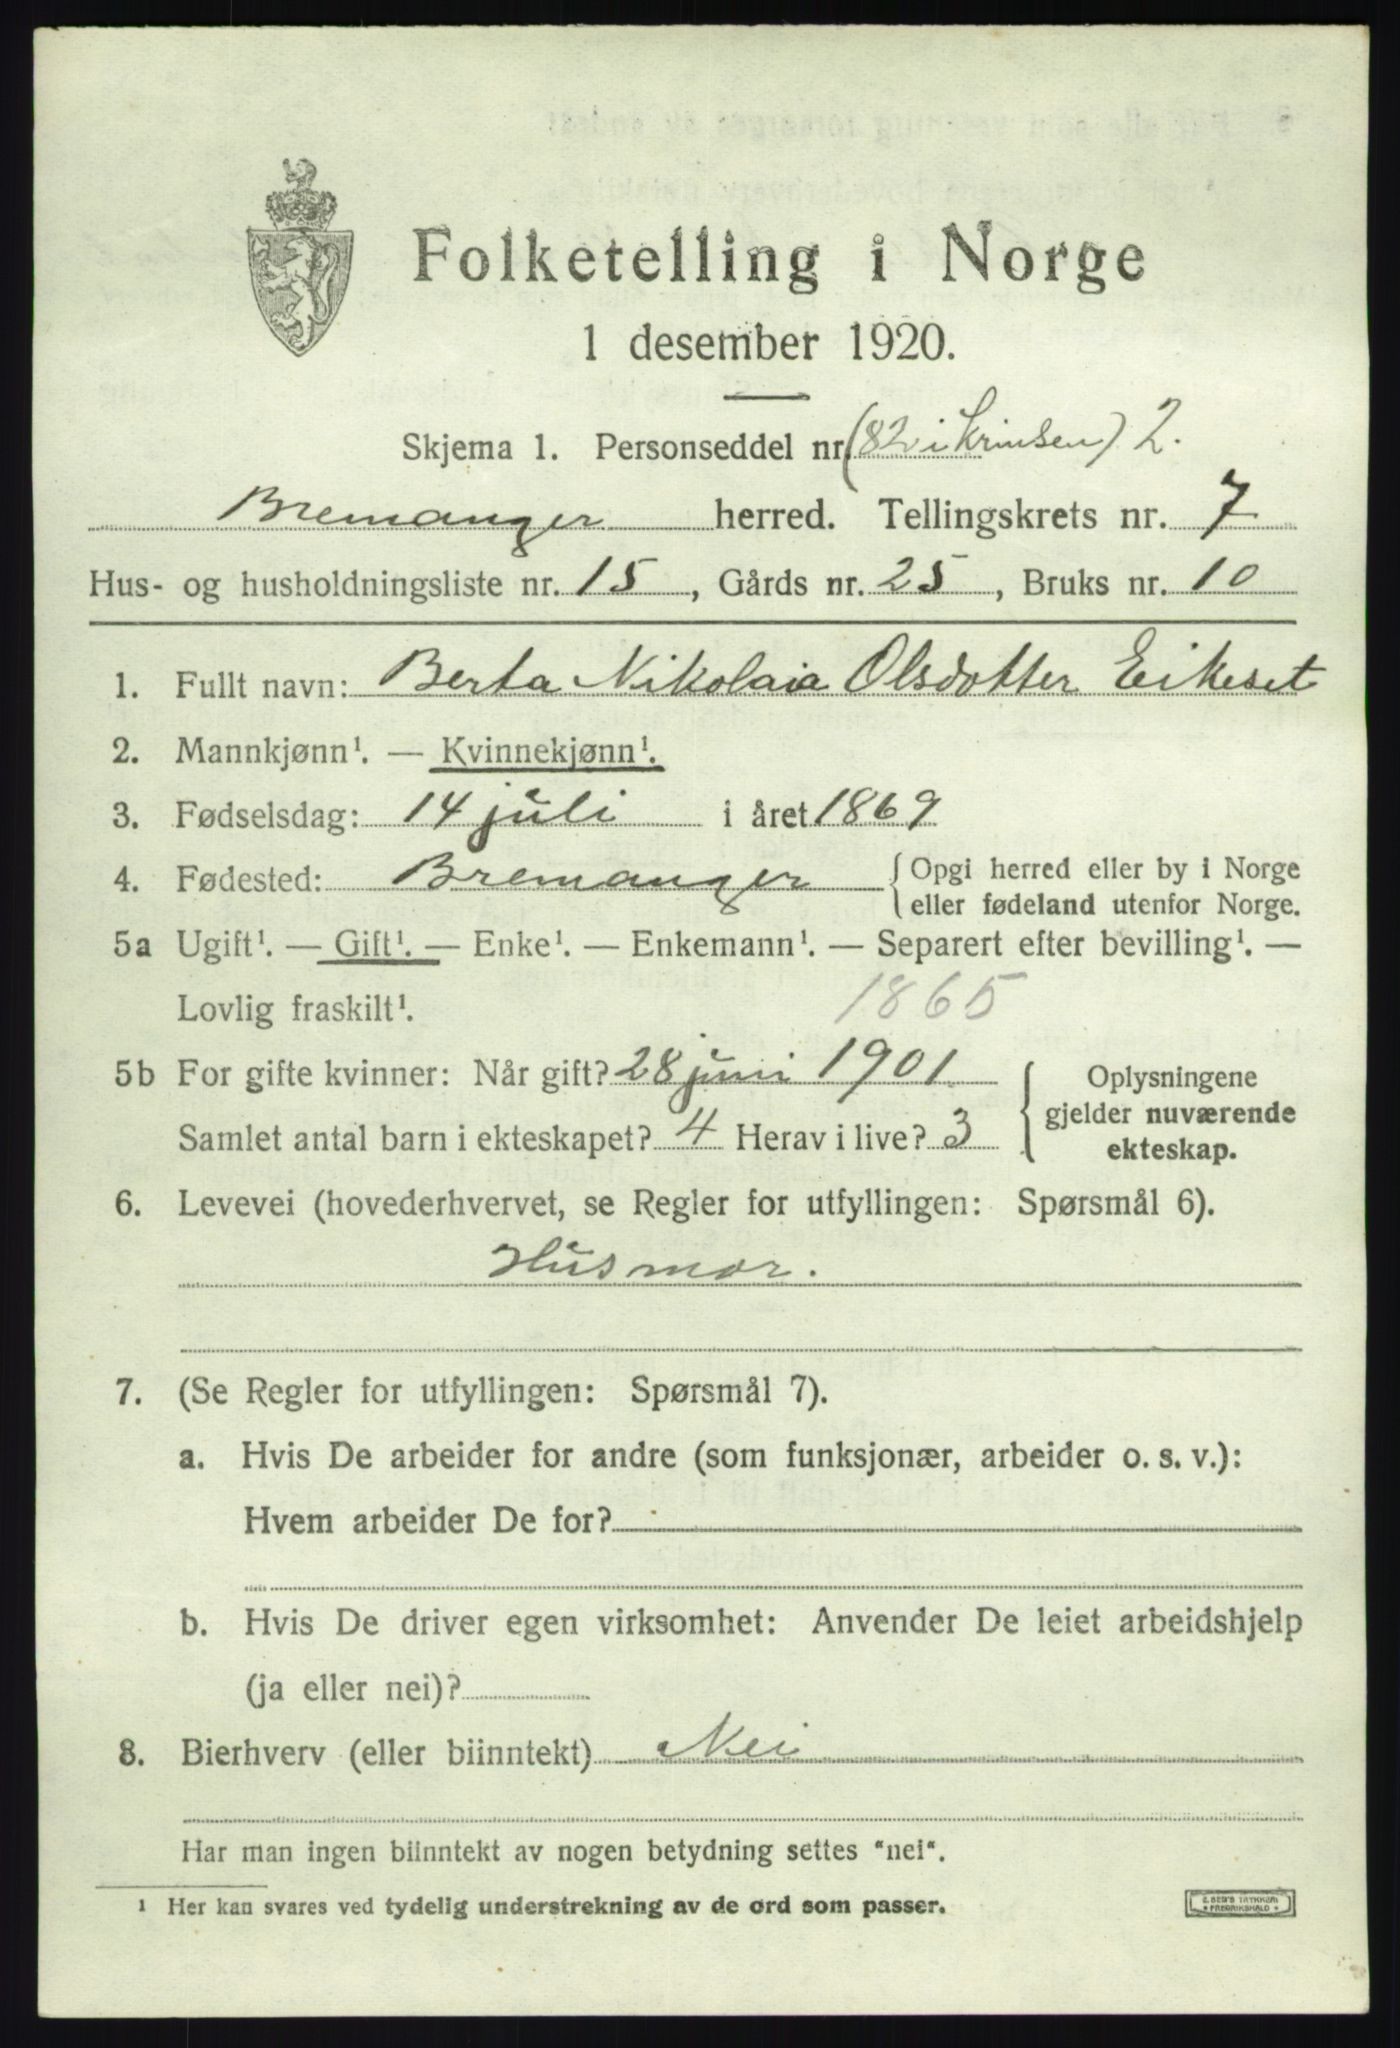 Folketelling i Norge
1 desember 1920.
Skjema 1. Personseddel nr. (82 i krinsen) 2.
Bremanger herred. Tellingskrets nr. 7
Hus- og husholdningsliste nr. 15, Gårds nr. 25, Bruks nr. 10
1. Fullt navn: Berta Nikolaia Olsdotter Eikeset
2. Mannkjønn¹. — Kvinnekjønn¹.
3. Fødselsdag: 14 juli i året 1869
4. Fødested: Bremanger { Opgi herred eller by i Norge
eller fødeland utenfor Norge.
5a Ugift¹. — Gift¹. — Enke¹. — Enkemann¹. — Separert efter bevilling¹. —
Lovlig fraskilt¹. 1865
5b For gifte kvinner: Når gift? 28 juni 1901.
Samlet antal barn i ekteskapet? 4 Herav i live? 3
{ Oplysningene
gjelder nuværende
ekteskap.
6. Levevei (hovederhvervet, se Regler for utfyllingen: Spørsmål 6).
Husmor.
7. (Se Regler for utfyllingen: Spørsmål 7).
a. Hvis De arbeider for andre (som funksjonær, arbeider o. s. v.):
Hvem arbeider De for?
b. Hvis De driver egen virksomhet: Anvender De leiet arbeidshjelp
(ja eller nei)?
8. Bierhverv (eller biinntekt) Nei
Har man ingen biinntekt av nogen betydning settes "nei".
¹ Her kan svares ved tydelig understrekning av de ord som passer.
E. SEM'S TRYKKERI
FREDRIKSHALD